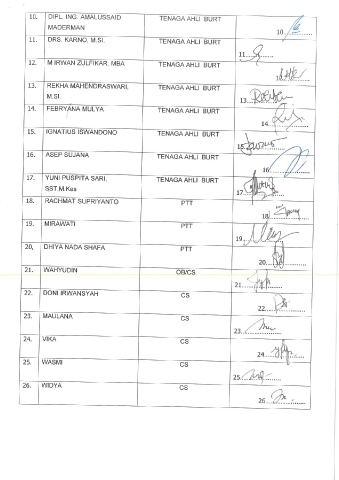 10. DIPL. ING. AMALUSSAID MADERMAN TENAGA AHLI BURT 10.
11. DRS. KARNO, M.SI. TENAGA AHLI BURT 11.
12. M IRWAN ZULFIKAR, MBA TENAGA AHLI BURT
13. REKHA MAHENDRASWARI, M.SI. TENAGA AHLI BURT 13.
14. FEBRYANA MULYA TENAGA AHLI BURT 14.
15. IGNATIUS ISWANDONO TENAGA AHLI BURT 15.
16. ASEP SUJANA TENAGA AHLI BURT 16.
17. YUNI PUSPITA SARI, SST.M.Kes TENAGA AHLI BURT 17.
18. RACHMAT SUPRIYANTO PTT 18.
19. MIRAWATI PTT 19.
20, DHIYA NADA SHAFA PTT 20.
21. WAHYUDIN OB/CS 21.
22. DONI IRWANSYAH CS 22.
23. MAULANA CS 23.
24. VIKA CS 24.
25. WASMI CS 25.
26. WIDYA CS 26